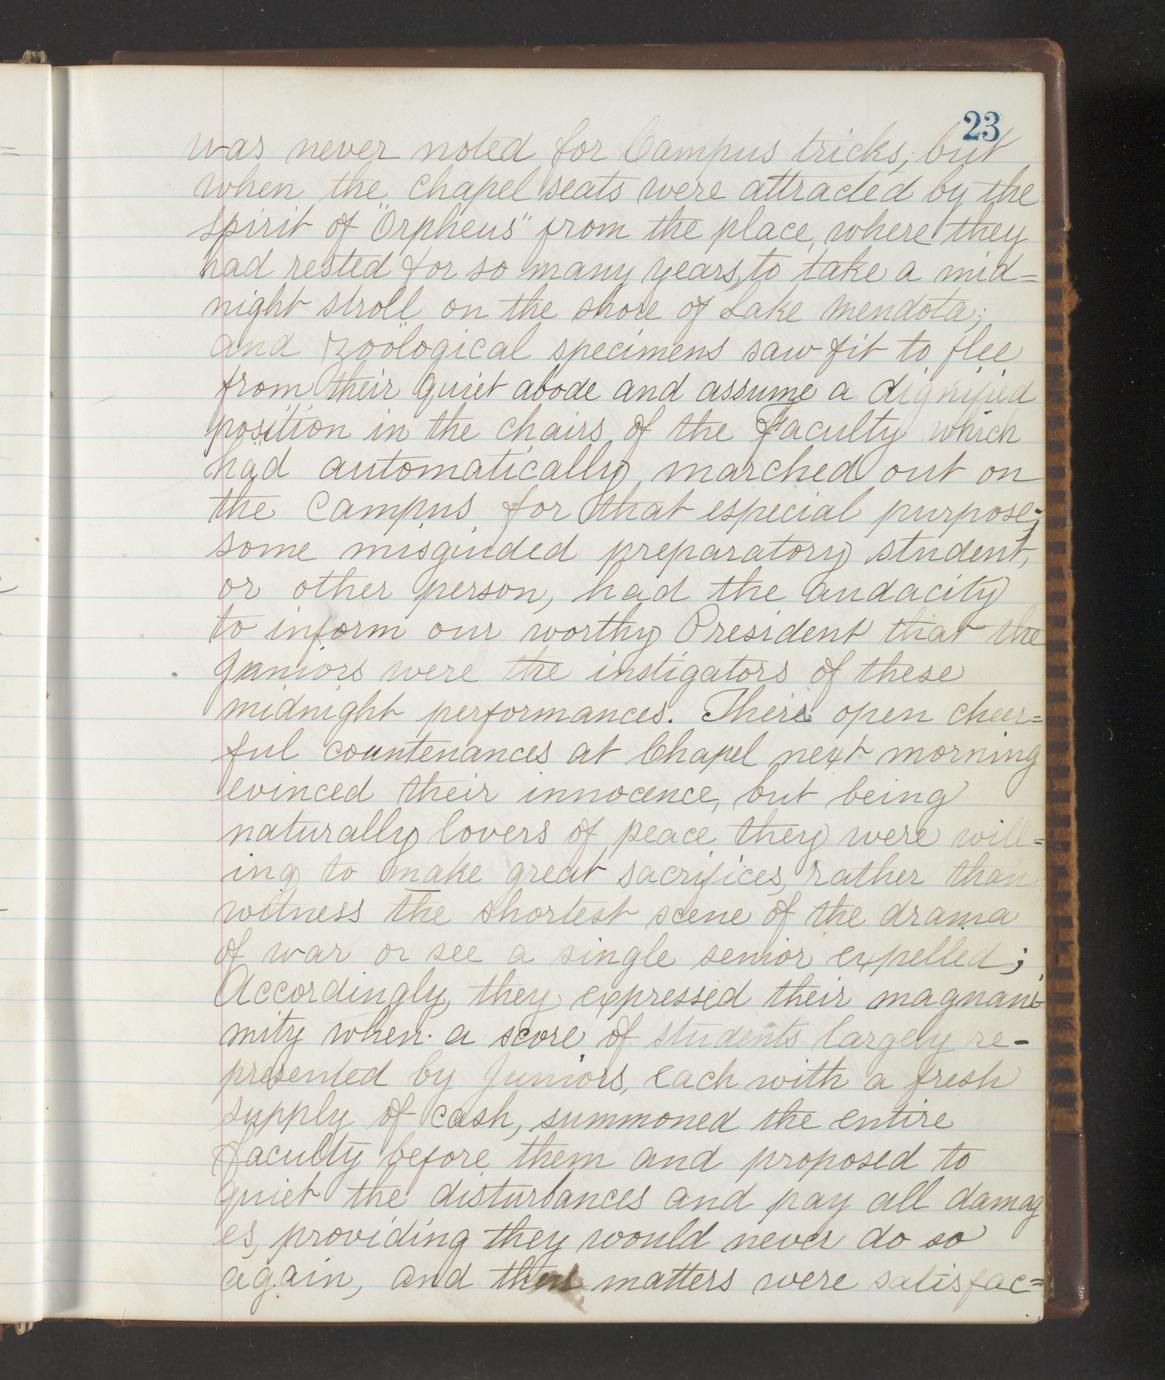 23
was never noted for Campus tricks; but
when the chapel seats were attracted by the
spirit of "Orpheus" from the place, where they
had rested for so many years, to take a mid=
night stroll on the shore of Lake Mendota;
and zoölogical specimens saw fit to flee
from their quiet abode and assume a dignified
position in the chairs of the Faculty which
had automatically marched out on
the Campus for that especial purpose;
some misguided preparatory student,
or other person, had the audacity
to inform our worthy President that the
Juniors were the instigators of these
midnight performances. Their open cheer=
ful countenances at Chapel next morning
evinced their innocence, but being
naturally lovers of peace they were will=
ing to make great sacrifices, rather than
witness the shortest scene of the drama
of war or see a single senior expelled;
Accordingly, they expressed their magnani
mity when a score of students largely re-
presented by Juniors, each with a fresh
supply of cash, summoned the entire
Faculty before them and proposed to
quiet the disturbances and pay all damag
es, providing they would never do so
again, and thus matters were satisfac=